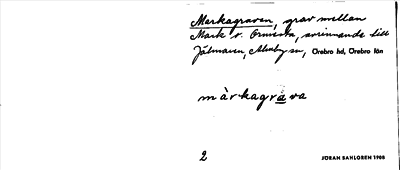 Markagraven, grav mellan
Mark o. Ormesta, avrinnande till
Hjälmaren, Almby sn, Örebro hd, Örebro län
màrkagrava
2
JÖRAN SAHLGREN 1966